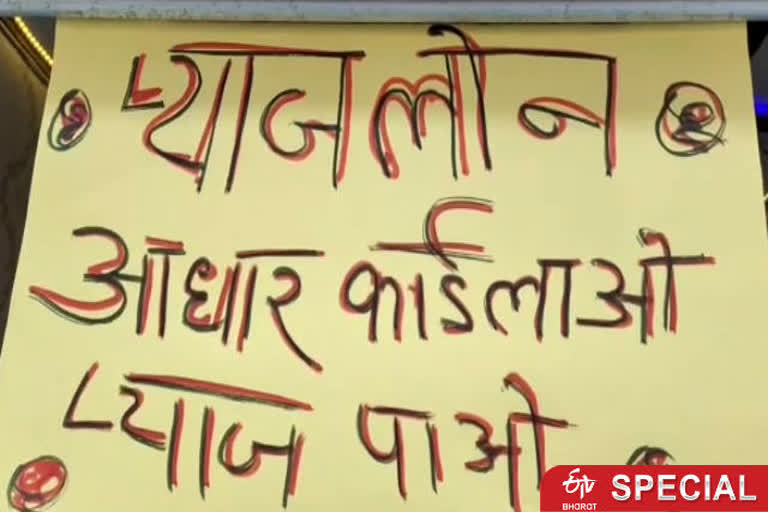 प्याज लोन
आधार कार्ड लाओ
प्याज पाओ
ETV BHARAT SPECIAL